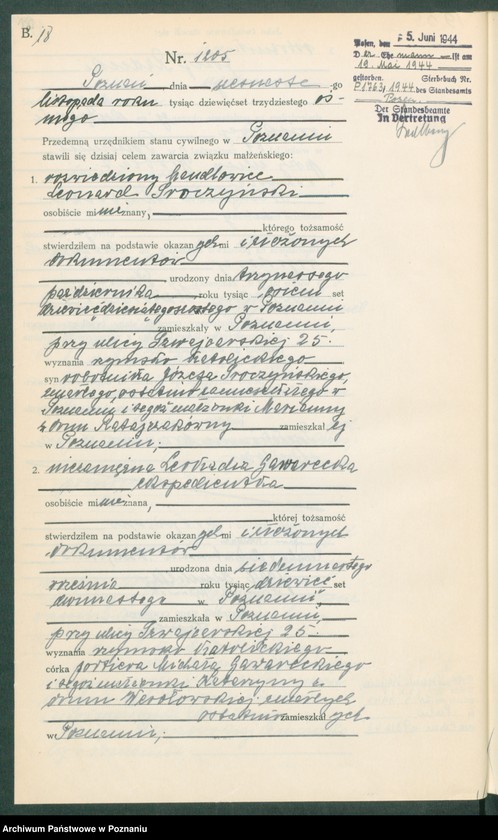 B. 18
Posen, den 5. Juni 1944
D er Ehemann ist am
19. Mai 1944
gestorben. Sterbebuch Nr.
P1763/1944 des Standesamts
Posen
Der Standesbeamte
In Vertretung
Nr. 1205
Poznań dnia go
listopada roku tysiąc dziewięćset trzydziestego ós-
mego
Przedemną urzędnikiem stanu cywilnego w Poznaniu
stawili się dzisiaj celem zawarcia związku małżeńskiego:
1. rozwiedziony handlowiec
Leonard Proczyński
osobiście mi nieznany,
którego tożsamość
stwierdziłem na podstawie okazanych mi i złożonych
dokumentów
urodzony dnia trzynastego
października roku tysiąc osiem set
dziewięćdziesiątego szóstego w Poznaniu
zamieszkały w Poznaniu,
przy ulicy Szwajcarskiej 25.
wyznania rzymsko katolickiego
syn robotnika Józefa Proczyńskiego,
zmarłego, ostatnio zamieszkałego w
Poznaniu i tegoż małżonki Marianny
z domu Ratajczakówny zamieszkałej
w Poznaniu;
2. niezamężna Leokadia Gawarecka
ekspedientka
osobiście mi nieznana,
której tożsamość
stwierdziłem na podstawie okazanych mi i złożonych
dokumentów
urodzona dnia siedemnastego
września roku tysiąc dziewięć set
dwunastego w Poznaniu,
zamieszkała w Poznaniu,
przy ulicy Szwajcarskiej 25.
wyznania rzymsko katolickiego
córka portiera Michała Gawareckiego
i tegoż małżonki Katarzyny z
domu Wesołowskiej zmarłych
ostatnio zamieszkałych
w Poznaniu;
Archiwum Państwowe w Poznaniu